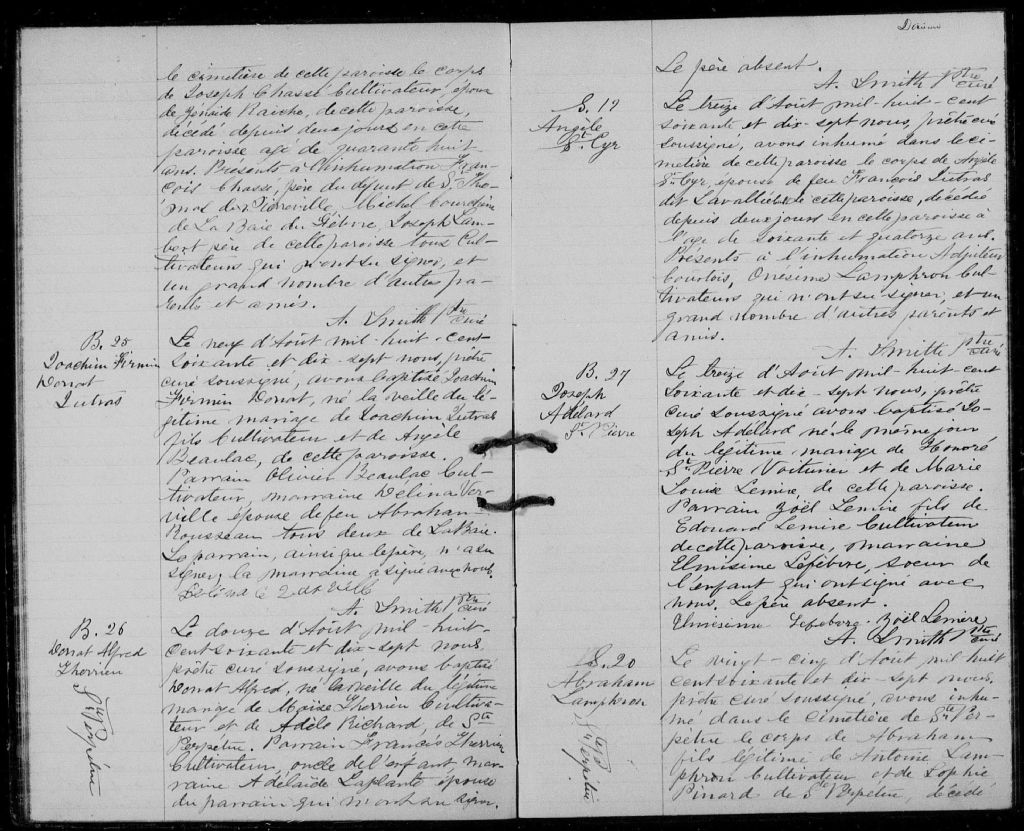 le cimetière de cette paroisse le corps
de Joseph Chassé Cultivateur, époux
de Zénaïde Raiche, de cette paroisse,
décédé depuis deux jours en cette
paroisse agé de quarante huit
ans. Présents à l'inhumation Fran-
çois Chassé, père du défunt de St Tho-
mas de Pierreville, Michel Courchène
de La Baie du Febvre, Joseph Lam-
bert père de cette paroisse tous Cul-
tivateurs qui n'ont su signer, et
un grand nombre d'autres pa-
rents et amis.
A. Smith Ptre curé
B. 25
Joachim Firmin
Donat
Dutras
Le neuf d'Août mil-huit-cent
soixante et dix-sept nous, prêtre
curé soussigné, avons baptisé Joachim
Firmin Donat, né la veille du lé-
gitime mariage de Joachim Dutras
fils Cultivateur et de Angèle
Beaulac, de cette paroisse.
Parrain Olivier Beaulac Cul-
tivateur, marraine Délina Ver-
ville épouse de feu Abraham
Rousseau tous deux de La Baie.
Le parrain, ainsi que le père, n'a su
signer, la marraine a signé avec nous.
A. Smith Ptre curé
B. 26
Donat Alfred
Therrien
Ste Perpétue
Le douze d'Août mil-huit-
cent soixante et dix-sept nous
prêtre curé soussigné, avons baptisé
Donat Alfred, né la veille du légitime
mariage de Moïse Therrien Cultiva-
teur et de Adèle Richard, de Ste
Perpétue. Parrain Francis Therrien
Cultivateur, oncle de l'enfant, mar-
raine Adélaïde Laplante épouse
du parrain qui n'ont su signer.
Le père absent.
A. Smith Ptre curé
S. 19
Angèle
St Cyr
Le treize d'Août mil-huit-cent
soixante et dix-sept nous, prêtre curé
soussigné, avons inhumé dans le ci-
metière de cette paroisse le corps de Angèle
St Cyr, épouse de feu François Dutras
dit Lavallière de cette paroisse, décédée
depuis deux jours en cette paroisse à
l'age de soixante et quatorze ans.
Présents à l'inhumation
Courtois, Onésime Lamphron Cul-
tivateurs qui n'ont su signer, et un
grand nombre d'autres parents et
amis.
A. Smith Ptre curé
B. 27
Joseph
Adélard
St Pierre
Le treize d'Août mil-huit-cent
soixante et dix-sept nous, prêtre
curé soussigné avons baptisé Jo-
seph Adélard né le même jour
du légitime mariage de Honoré
St Pierre Voiturier et de Marie
Louise Lemire, de cette paroisse.
Parrain Zoël Lemire fils de
Edouard Lemire Cultivateur
de cette paroisse, marraine
Elmisime Lefebvre, soeur de
l'enfant qui ont signé avec
nous. Le père absent.
Lefebvre. Zoël Lemire
A. Smith Ptre curé
S. 20
Abraham
Lamphron
Ste Perpétue
Le vingt-cinq d'Août mil huit
cent soixante et dix-sept nous,
prêtre curé soussigné, avons inhu-
mé dans le cimetière de Ste Per-
pétue le corps de Abraham
fils légitime de Antoine Lam-
phron Cultivateur et de Sophie
Pinard de Ste Perpétue, décédé